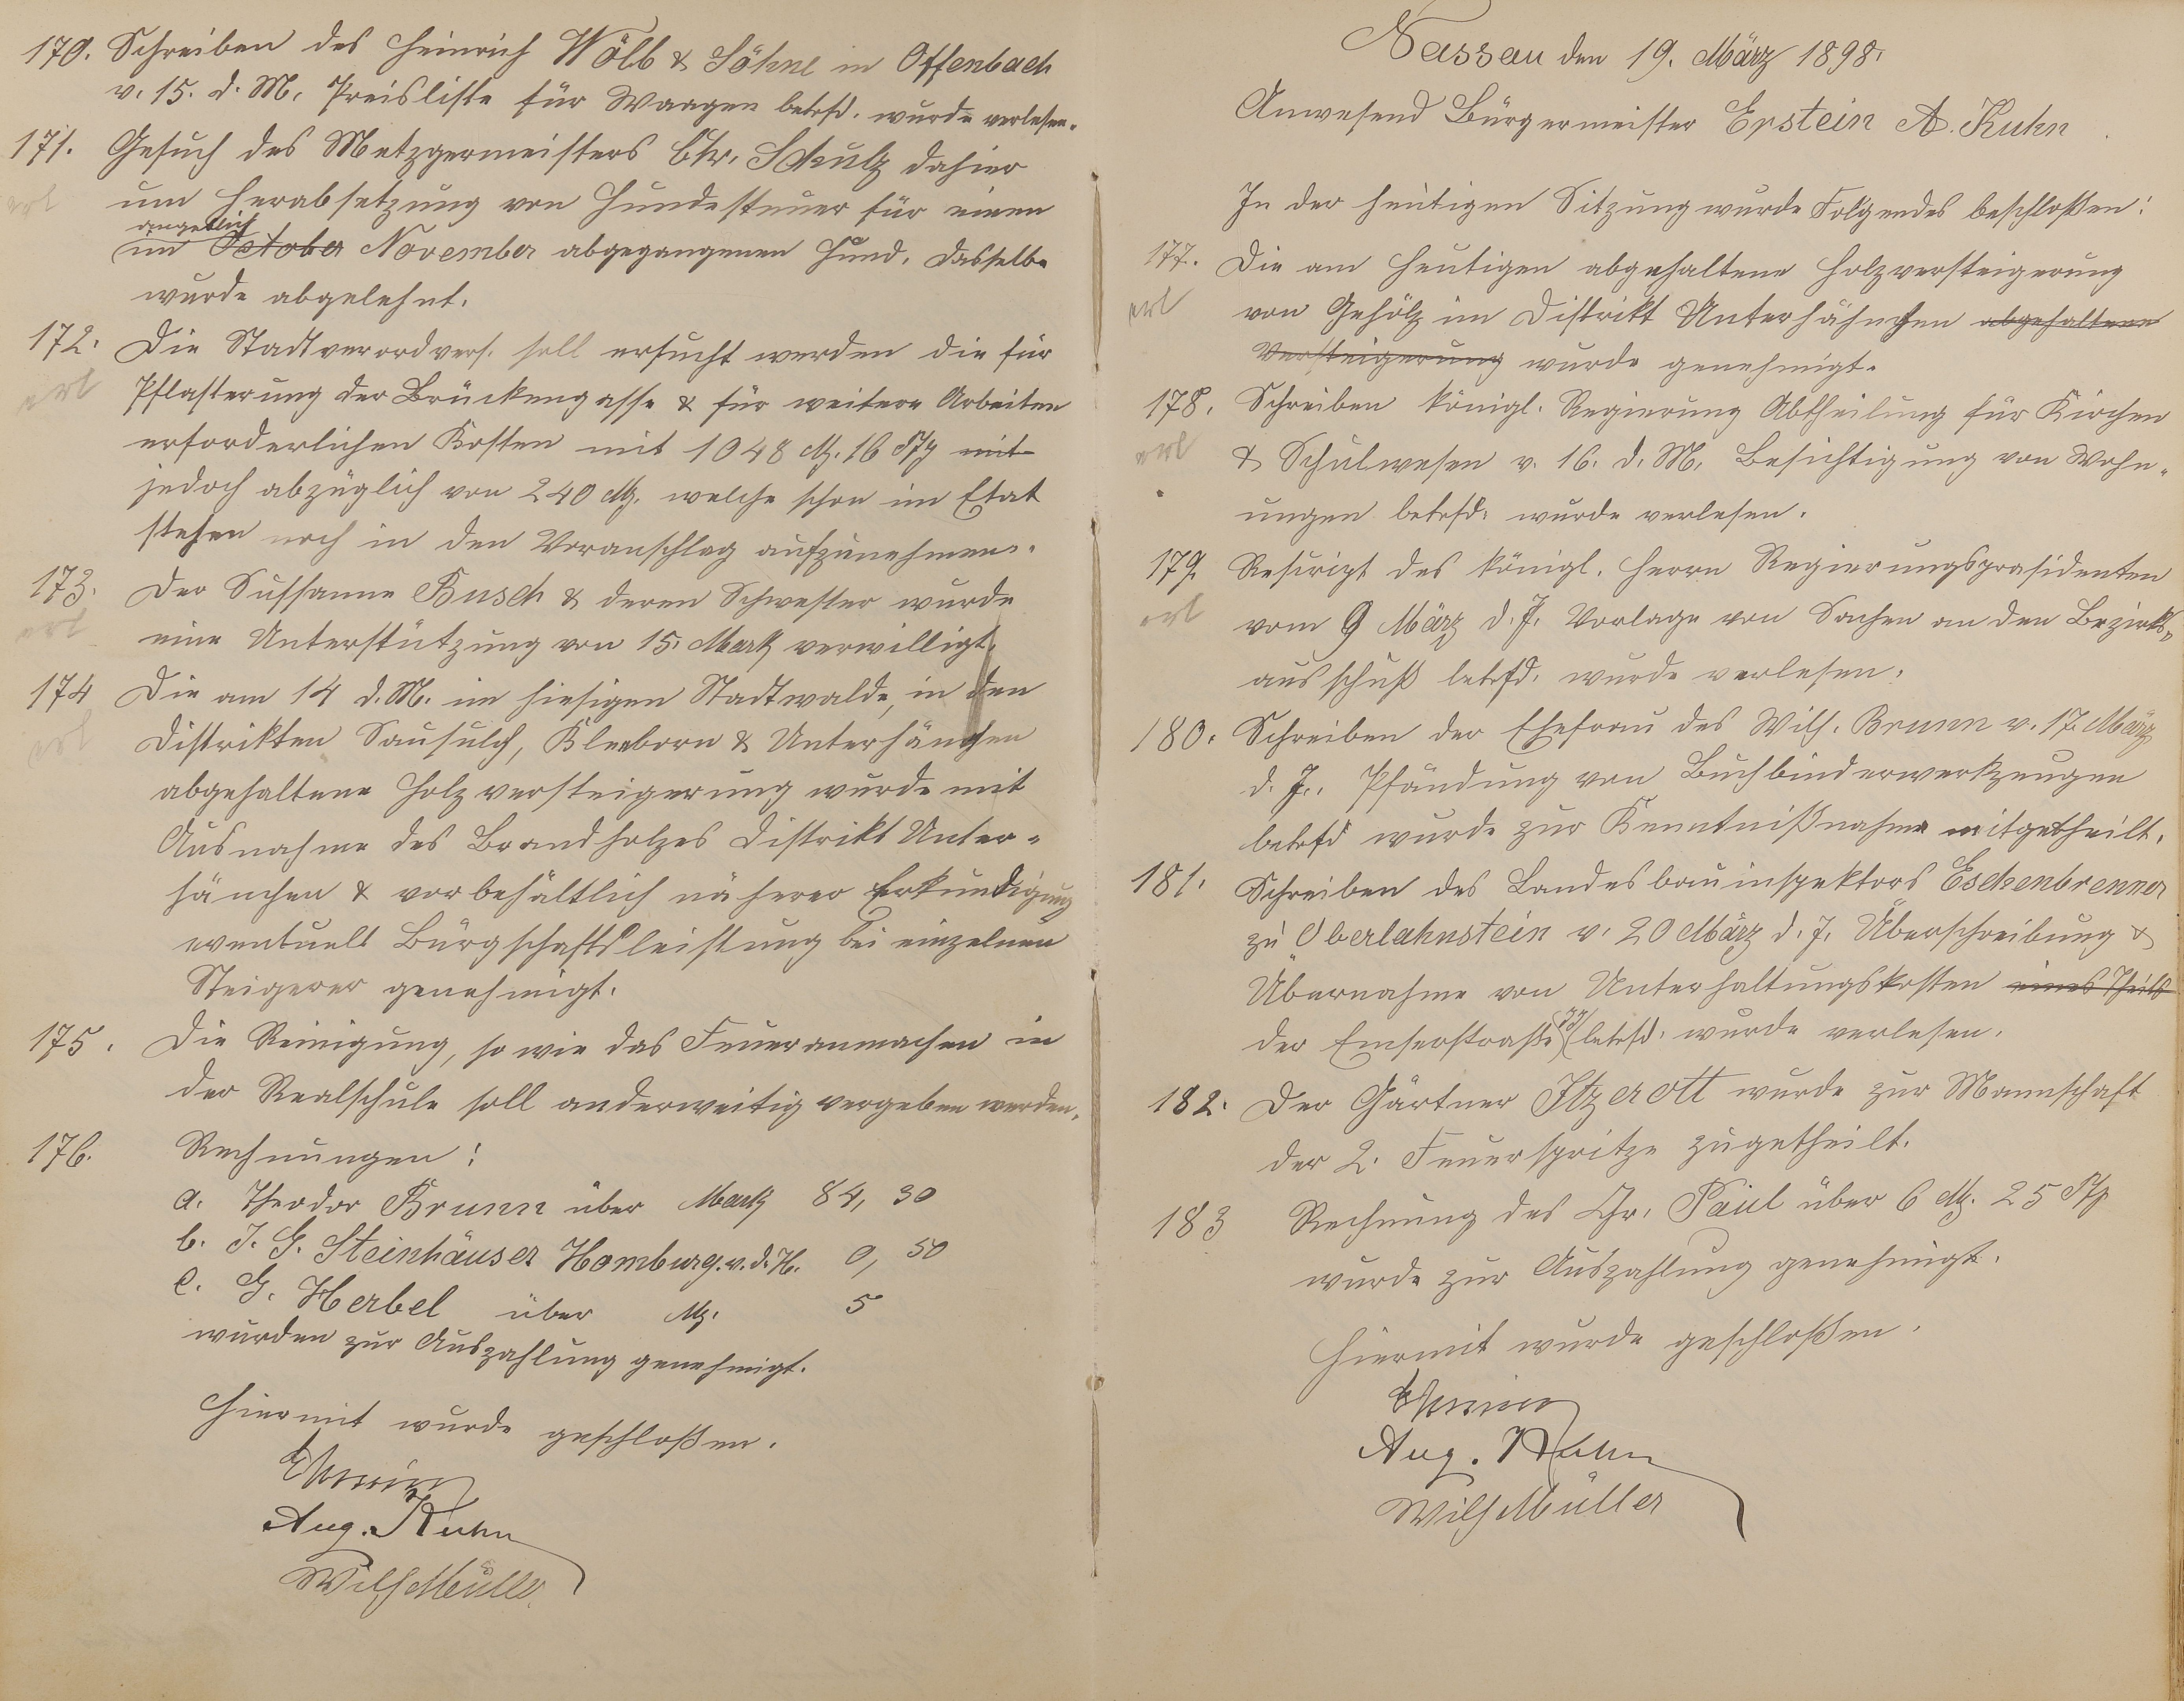 170. Schreiben des Heinrich Wölb & Söhne in Offenbach
v. 15. d. M. Preisliste für Waagen betrfd. wurde verlesen.
171. Gesuch des Metzgermeisters Chr. Schulz dahier
erl um Herabsetzung von Hundesteuer für einen
angeblich
im October November abgegangenen Hund. Dasselbe
wurde abgelehnt.
172. Die Stadtverordvers. soll ersucht werden die für
erl Pflasterung der Brückengasse & für weitere Arbeiten
erforderlichen Kosten mit 1048 M. 16 Pfg mit
jedoch abzüglich von 240 M. welche schon im Etat
stehen noch in den Voranschlag aufzunehmen.
173. Der Sussanne Busch & deren Schwester wurde
erl eine Unterstützung von 15. Mark verwilligt.
174 Die am 14 d. M. im hiesigen Stadtwalde, in den
erl Distrikten Sausulch, Kleeborn & Unterhänchen
abgehaltene Holzversteigerung wurde mit
Ausnahme des Brandholzes Distrikt Unter-
hänchen & vorbehältlich näherer Erkundigung
eventuell Bürgschaftsleistung bei einzelnen
Steigerer genehmigt.
175. Die Reinigung, so wie das Feueranmachen in
der Realschule soll anderweitig vergeben werden.
176. Rechnungen:
a. Theodor Brunn über Mark 84, 30
b. J. G. Steinhäuser Homburg. v. d. H. 0, 50
c. G. Herbel über M. 5
wurden zur Auszahlung genehmigt.
Hiermit wurde geschloßen.
Aug. Kuhn
Wilh Müller.
Nassau den 19. März 1898.
Anwesend Bürgermeister Epstein A. Kuhn
In der heutigen Sitzung wurde Folgendes beschloßen:
177. Die am heutigen abgehaltene Holzversteigerung
erl von Gehölz im Distrikt Unterhähnchen abgehaltene
Versteigerung wurde genehmigt.
178. Schreiben königl. Regierung Abtheilung für Kirchen
erl & Schulwesen v. 16. d. M. Besichtigung von Wohn-
ungen betrfd. wurde verlesen.
179. Rescript des königl. Herrn Regierungspräsidenten
erl vom 9 März d. J. Vorlage von Sachen an den Bezirks-
ausschuß betrfd. wurde verlesen.
180. Schreiben der Ehefrau des Wilh. Brunn v. 17. März
d. J. Pfändung von Buchbinderwerkzeugen
betrfd wurde zur Kenntnißnahme mitgetheilt.
181. Schreiben des Landesbauinspektors Eschenbrenner
zu Oberlahnstein v. 20 März d. J. Überschreibung &
Übernahme von Unterhaltungskosten eines Theils
der Emserstraße betrfd. wurde verlesen.
182. Der Gärtner Itzerott wurde zur Mannschaft
der 2. Feuerspritze zugetheilt.
183 Rechnung des Chr. Paul über 6 M. 25 Pfg
wurde zur Auszahlung genehmigt.
Hiermit wurde geschloßen.
Aug. Kuhn
Wilh Müller